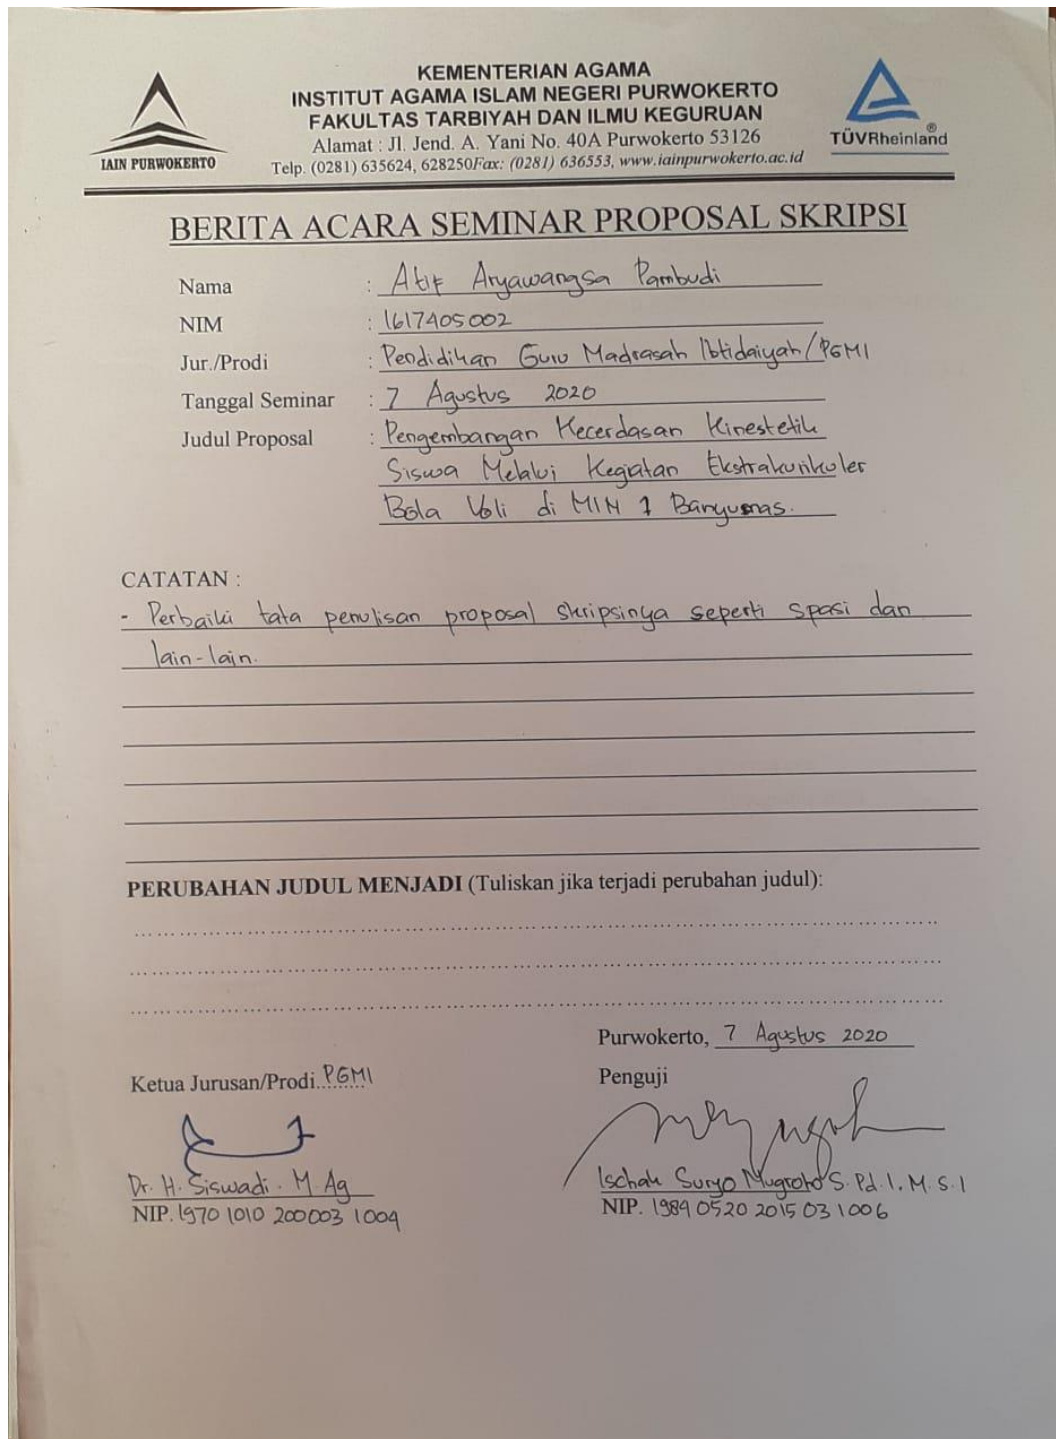 KEMENTERIAN AGAMA
INSTITUT AGAMA ISLAM NEGERI PURWOKERTO
FAKULTAS TARBIYAH DAN ILMU KEGURUAN
Alamat : Jl. Jend. A. Yani No. 40A Purwokerto 53126
Telp. (0281) 635624, 628250Fax: (0281) 636553, www.iainpurwokerto.ac.id
IAIN PURWOKERTO
TÜVRheinland®
BERITA ACARA SEMINAR PROPOSAL SKRIPSI
Nama : Atif Aryawangsa Pambudi
NIM : 1617405002
Jur./Prodi : Pendidikan Guru Madrasah Ibtidaiyah/PGMI
Tanggal Seminar : 7 Agustus 2020
Judul Proposal : Pengembangan Kecerdasan Kinestetik
Siswa Melalui Kegiatan Ekstrakurikuler
Bola Voli di MIN 1 Banyumas.
CATATAN :
- Perbaiki tata penulisan proposal skripsinya seperti spasi dan
lain-lain.
PERUBAHAN JUDUL MENJADI (Tuliskan jika terjadi perubahan judul):
Purwokerto, 7 Agustus 2020
Ketua Jurusan/Prodi PGMI
Penguji
Dr. H. Siswadi. M. Ag
NIP. 1970 1010 200003 1004
Ischak Suryo Nugroho S. Pd. I. M. S. I
NIP. 1984 0520 2015 03 1006